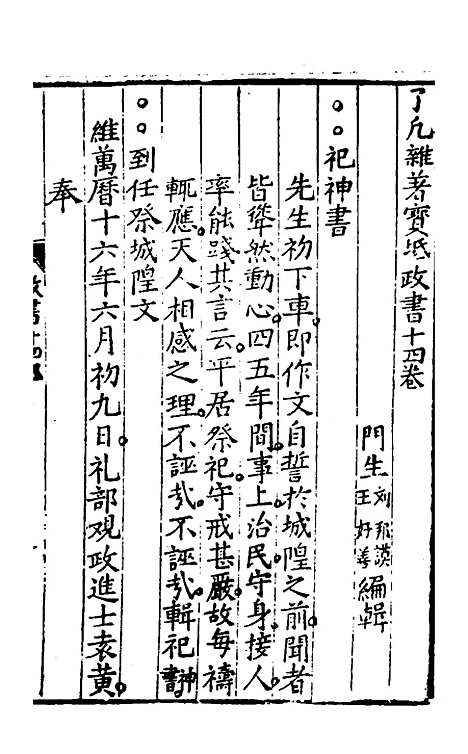 了凡雜著寶坻政書十四卷
門生 劉邦謨 王好善 編輯
祀神書
先生初下車即作文自誓於城隍之前聞者
皆聳然動心四五年間事上治民守身接人
率能踐其言云平居祭祀守戒甚嚴故每禱
輒應天人相感之理不誣㢤不誣㢤輯祀神書
到任祭城隍文
維萬曆十六年六月初九日礼部观政進士袁黄
奉
政書十四